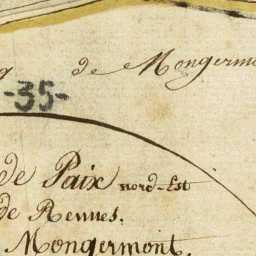 de Mongerm
-35-
de Paix nord-Est
de Rennes.
Mongermont.